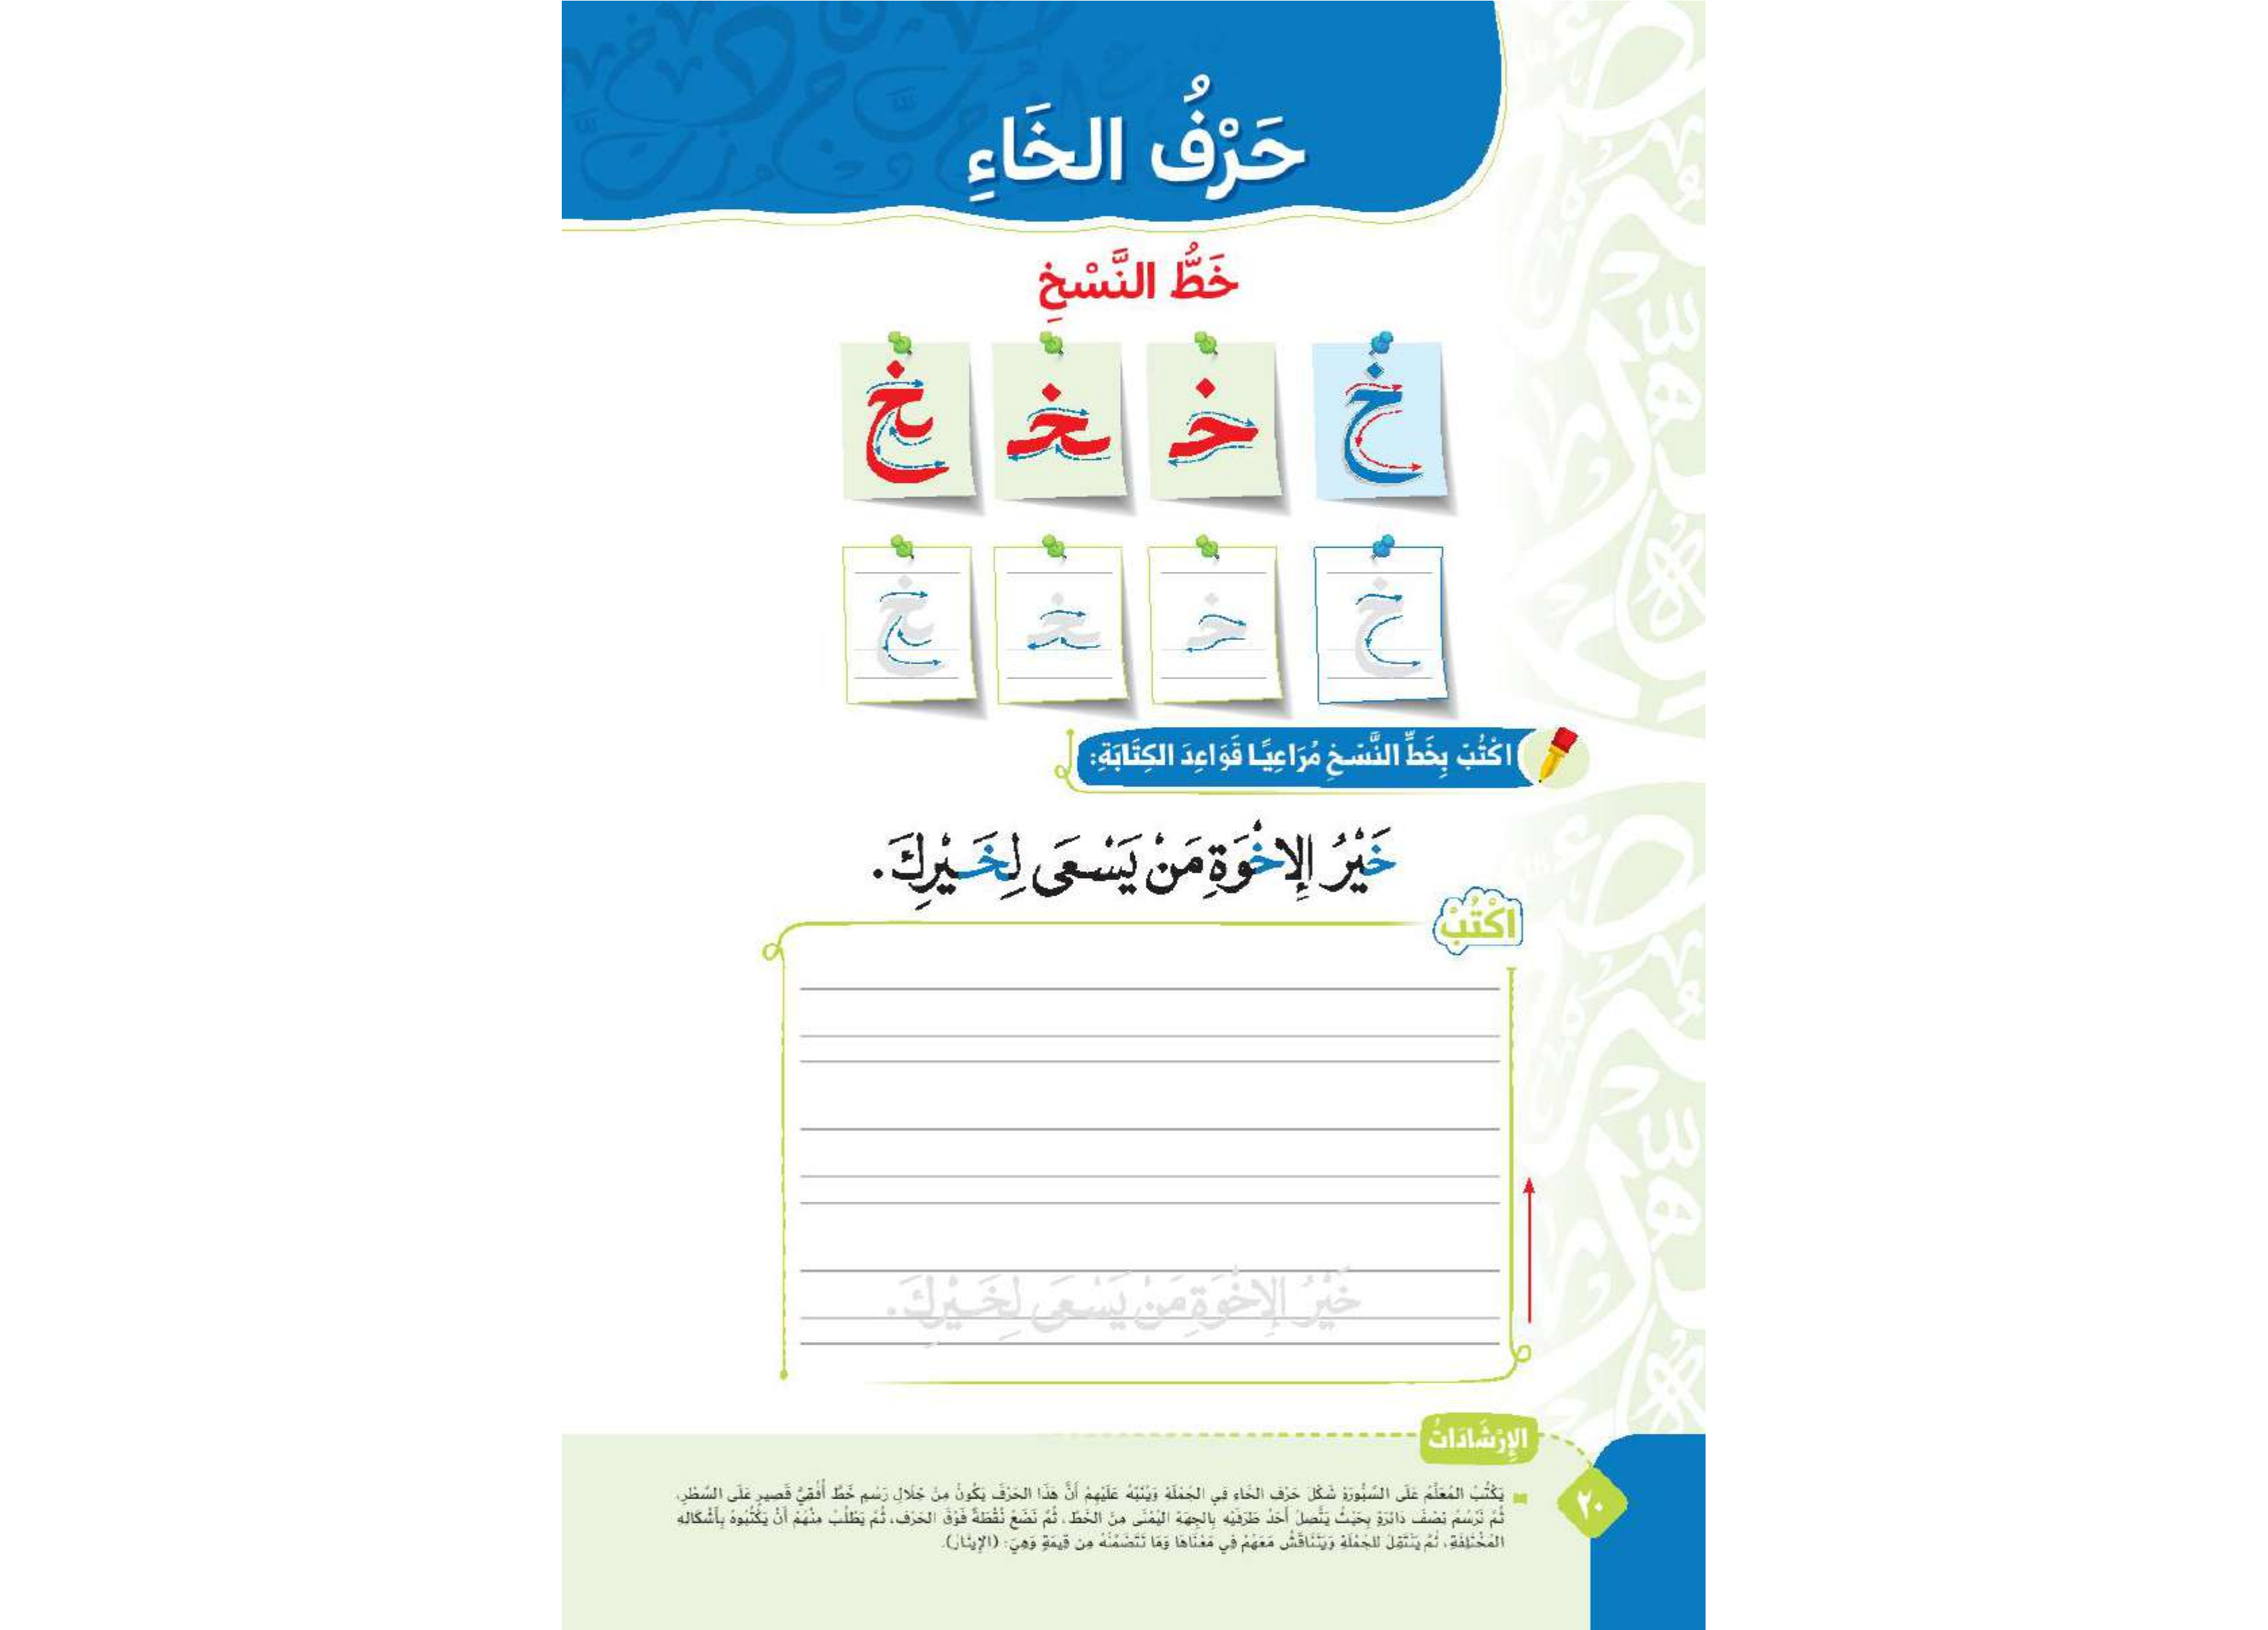 حَرْفُ الخَاءِ
خَطُّ النَّسْخِ
خ خـ ـخـ ـخ
خ خـ ـخـ ـخ
اكْتُبْ بِخَطِّ النَّسْخِ مُرَاعِيًا قَوَاعِدَ الكِتَابَةِ:
خَيْرُ الإِخْوَةِ مَنْ يَسْعَى لِخَيْرِكَ.
اكْتُبْ
خَيْرُ الإِخْوَةِ مَنْ يَسْعَى لِخَيْرِكَ.
الإِرْشَادَاتُ
يَكْتُبُ المُعَلِّمُ عَلَى السَّبُّورَةِ شَكْلَ حَرْفِ الخَاءِ فِي الجُمْلَةِ وَيُنَبِّهُ عَلَيْهِمْ أَنَّ هَذَا الحَرْفَ يَكُونُ مِنْ خِلَالِ رَسْمِ خَطٍّ أُفُقِيٍّ قَصِيرٍ عَلَى السَّطْرِ،
ثُمَّ نَرْسُمُ نِصْفَ دَائِرَةٍ بِحَيْثُ يَتَّصِلُ أَحَدُ طَرَفَيْهِ بِالجِهَةِ اليُمْنَى مِنَ الخَطِّ، ثُمَّ نَضَعُ نُقْطَةً فَوْقَ الحَرْفِ، ثُمَّ يَطْلُبُ مِنْهُمْ أَنْ يَكْتُبُوهُ بِأَشْكَالِهِ
المُخْتَلِفَةِ، ثُمَّ يَنْتَقِلُ لِلجُمْلَةِ وَيَتَنَاقَشُ مَعَهُمْ فِي مَعْنَاهَا وَمَا تَتَضَمَّنُهُ مِنْ قِيمَةٍ وَهِيَ: (الإِيثَارُ).
٢٠